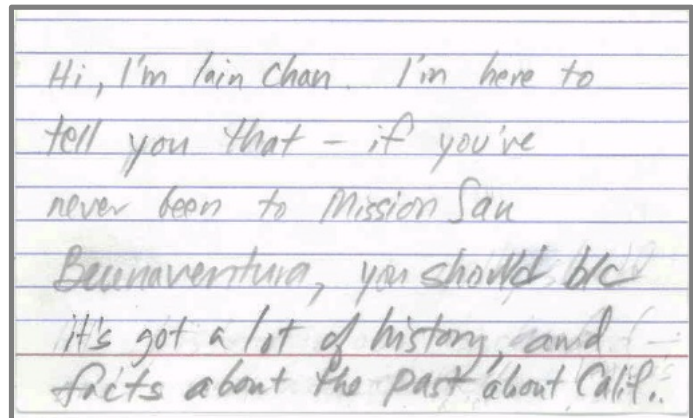 Hi, I'm Iain Chan. I'm here to
tell you that – if you've
never been to Mission San
Buenaventura, you should b/c
it's got a lot of history, and
facts about the past about Calif..